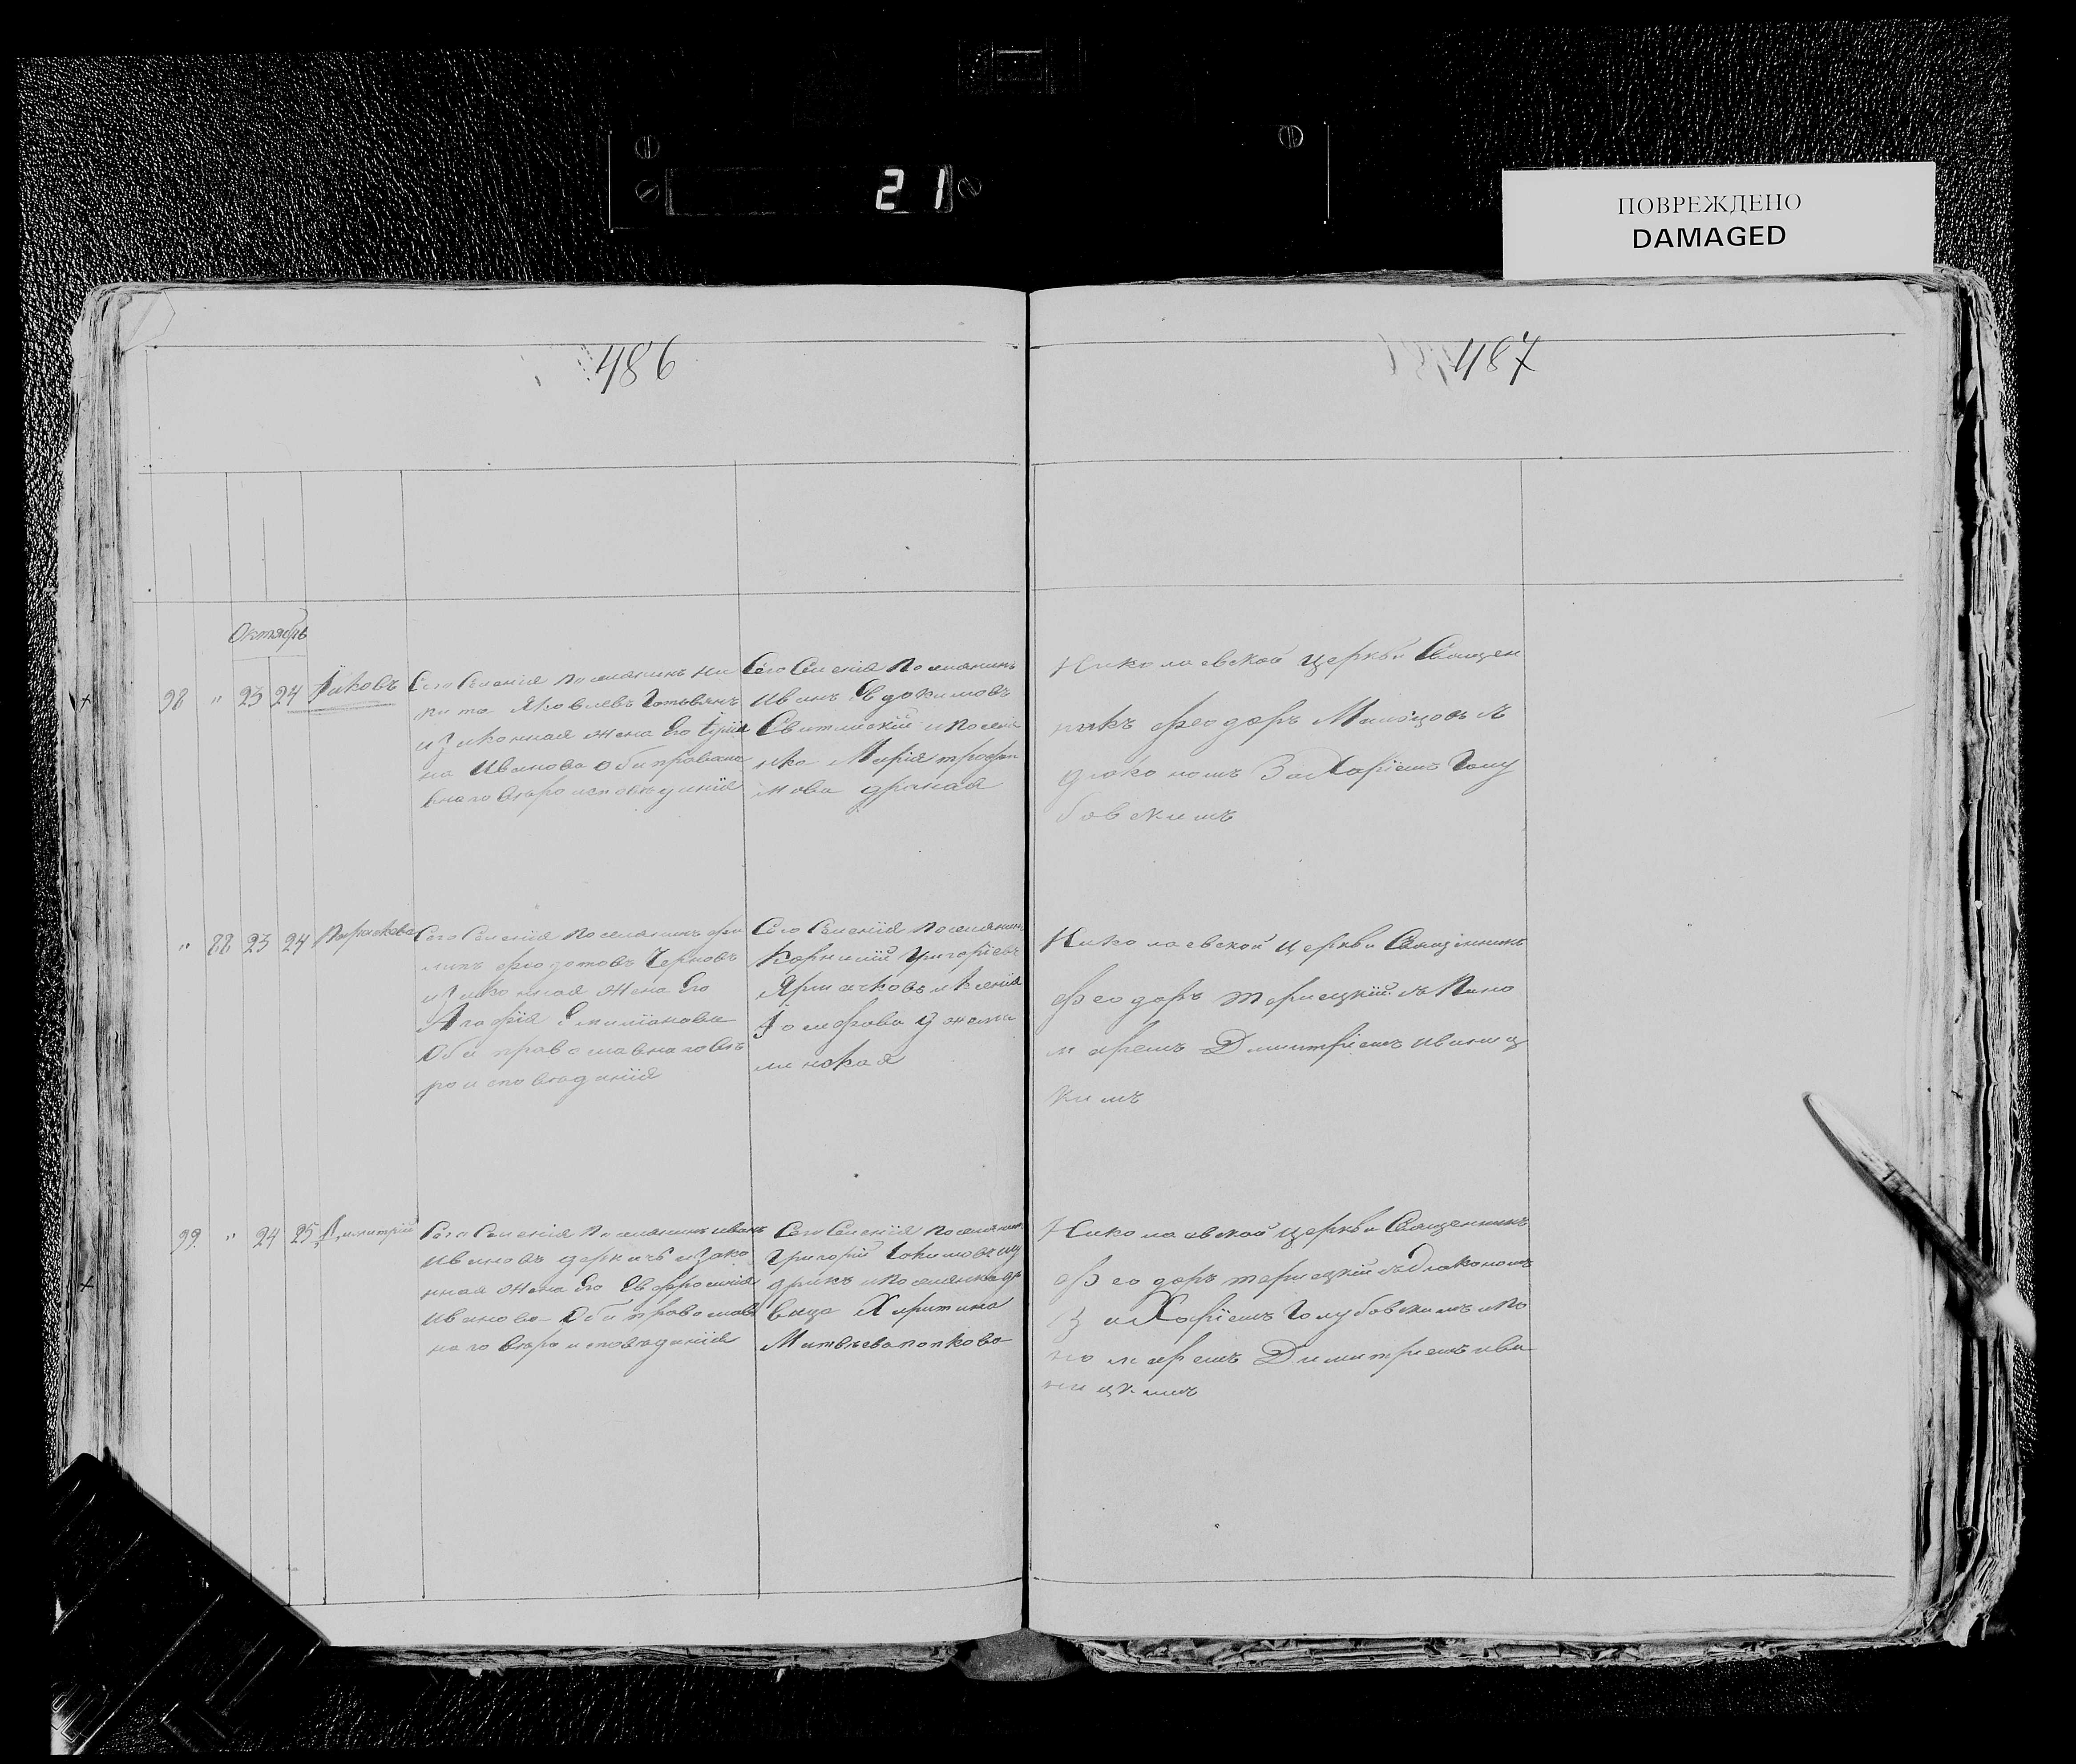 21
ПОВРЕЖДЕНО
DAMAGED
486
487
Октябрь
98 " 23 24 Іаковъ
Сего Селенія поселянинъ Ни
кита Яковлевъ
и законная жена Его Ирин
на Иванова оба православ
внаго вѣроисповѣданія
Сего Селенія поселянинъ
Иванъ Евдокимовъ
и поселя
нка Марія трофи
мова
Николаевской церкви Священ
никъ феодоръ съ
діакономъ Захаріемъ Голу
бовскимъ
" 88 23 24 Параскева
Сего Селенія поселянинъ фи
липъ федотовъ Черновъ
и законная жена Его
Агафія Емиліанова
Оба православнаго вѣ
роисповѣданія
Сего Селенія поселянинъ
Корнилій Григоріевъ
и Ксенія
Николаевской церкви Священникъ
феодоръ съ Поно
маремъ Димитріемъ Иваниц
кимъ
99 " 24 25 Димитрій
Сего Селенія поселянинъ иванъ
Ивановъ и зако
нная жена Его Евфросинія
Иванова Оба православ
наго вѣроисповѣданія
Сего Селенія поселянинъ
Григорій
и поселянка
вица Харитина
Матвѣева попкова
Николаевской церкви Священникъ
феодоръ съ Діакономъ
Захаріемъ Голубовскимъ и по
номаремъ Димитріемъ ива
ницкимъ